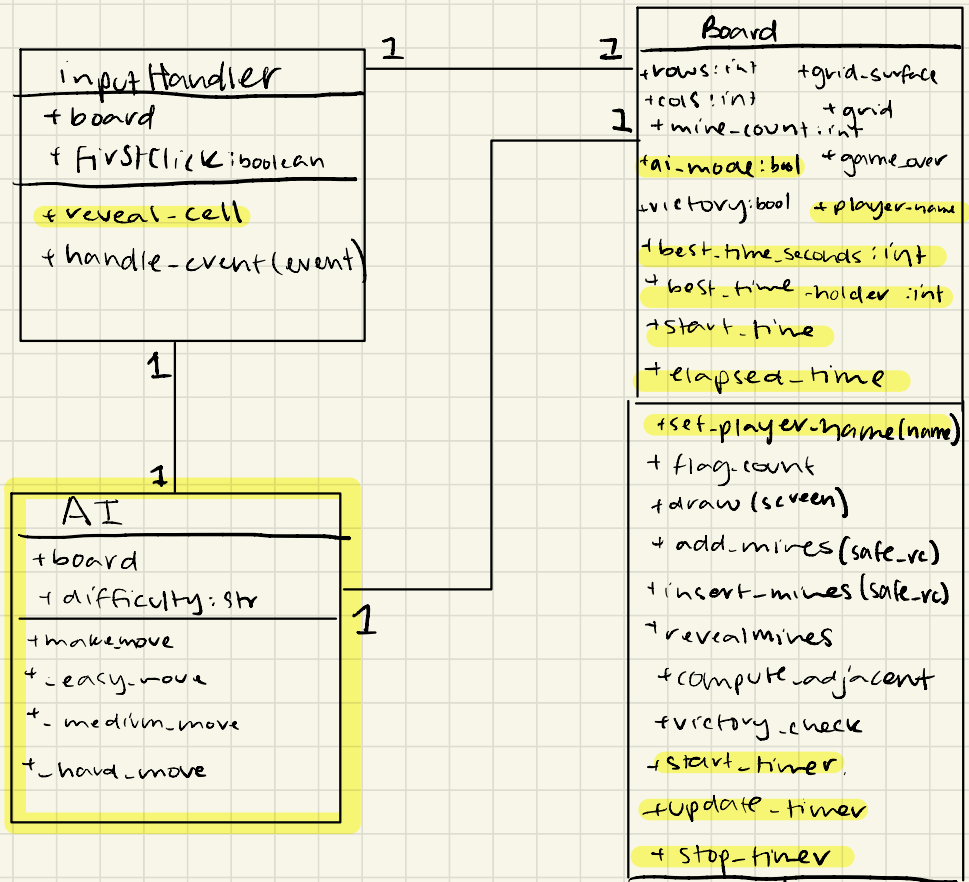 inputHandler
+ board
+ firstClick:boolean
+ reveal_cell
+ handle_event(event)
1
1
1
1
1
1
AI
+ board
+ difficulty: str
+ make_move
+ _easy_move
+ _medium_move
+ _hard_move
Board
+rows: int +grid_surface
+cols: int + grid
+ mine_count: int
+ai_mode: bool + game_over
+victory: bool + player_name
+ best_time_seconds: int
+ best_time_holder: int
+ start_time
+ elapsed_time
+set_player_name(name)
+ flag_count
+ draw (screen)
+ add_mines (safe_rc)
+ insert_mines (safe_rc)
+ revealmines
+ compute_adjacent
+ victory_check
+ start_timer
+ update_timer
+ stop_timer